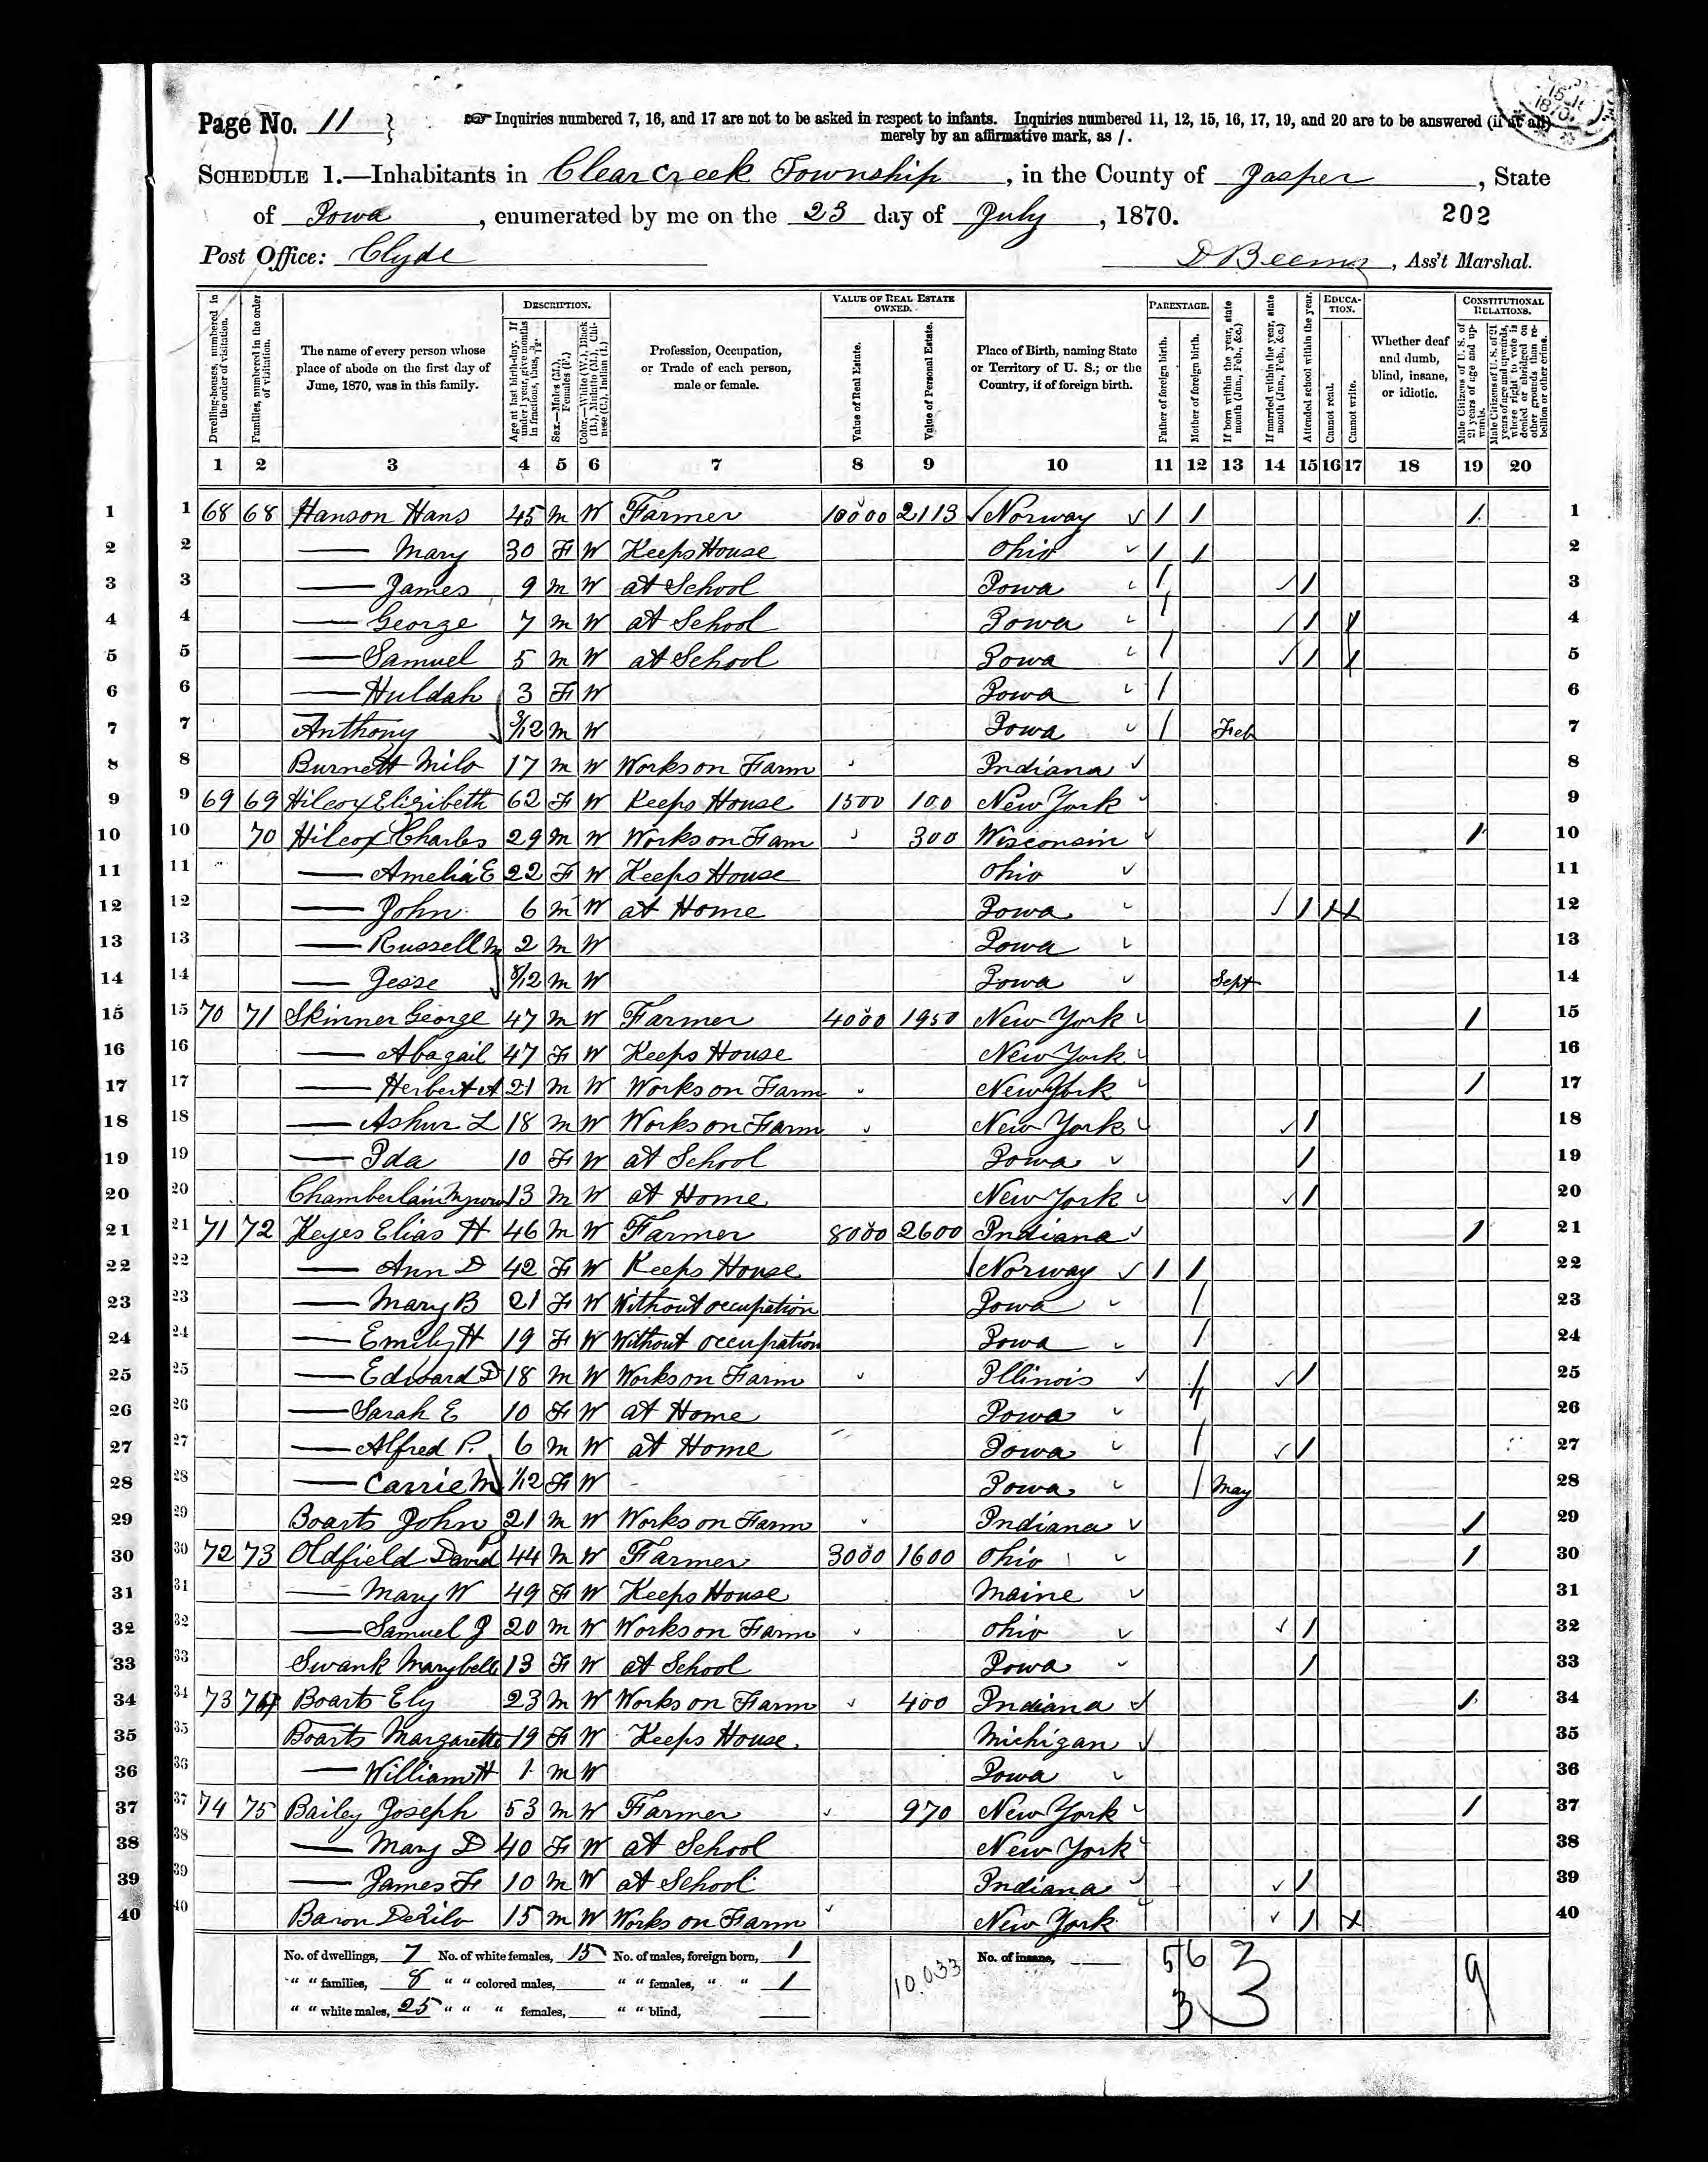 Page No. 11
Inquiries numbered 7, 16, and 17 are not to be asked in respect to infants. Inquiries numbered 11, 12, 15, 16, 17, 19, and 20 are to be answered (if at all)
merely by an affirmative mark, as /.
SCHEDULE 1.—Inhabitants in Clearcreek Township, in the County of Jasper, State
of Iowa, enumerated by me on the 23 day of July, 1870. 202
Post Office: Clyde D Beemer, Ass't Marshal.
DESCRIPTION. VALUE OF REAL ESTATE OWNED. PARENTAGE. EDUCATION. CONSTITUTIONAL RELATIONS.
Dwelling-houses, numbered in the order of visitation.
Families, numbered in the order of visitation.
The name of every person whose place of abode on the first day of June, 1870, was in this family.
Age at last birth-day. If under 1 year, give months in fractions, thus, 3/12.
Sex.—Males (M.), Females (F.)
Color.—White (W.), Black (B.), Mulatto (M.), Chinese (C.), Indian (I.)
Profession, Occupation, or Trade of each person, male or female.
Value of Real Estate.
Value of Personal Estate.
Place of Birth, naming State or Territory of U. S.; or the Country, if of foreign birth.
Father of foreign birth.
Mother of foreign birth.
If born within the year, state month (Jan., Feb., &c.)
If married within the year, state month (Jan., Feb., &c.)
Attended school within the year.
Cannot read.
Cannot write.
Whether deaf and dumb, blind, insane, or idiotic.
Male Citizens of U. S. of 21 years of age and upwards.
Male Citizens of U. S. of 21 years of age and upwards, whose right to vote is denied or abridged on other grounds than rebellion or other crime.
1 2 3 4 5 6 7 8 9 10 11 12 13 14 15 16 17 18 19 20
1 1 68 68 Hanson Hans 45 M W Farmer 10000 2113 Norway / / / 1
2 2 — Mary 30 F W Keeps House Ohio / / 2
3 3 — James 9 M W at School Iowa / / 3
4 4 — George 7 M W at School Iowa / / / 4
5 5 — Samuel 5 M W at School Iowa / / / 5
6 6 — Huldah 3 F W Iowa / 6
7 7 Anthony 3/12 M W Iowa / Feb 7
8 8 Burnett Milo 17 M W Works on Farm Indiana 8
9 9 69 69 Hilcox Elizibeth 62 F W Keeps House 1500 100 New York 9
10 10 70 Hilcox Charles 29 M W Works on Fam 300 Wisconsin / 10
11 11 — Amelia E 22 F W Keeps House Ohio 11
12 12 — John 6 M W at Home Iowa / / / 12
13 13 — Russell M 2 M W Iowa 13
14 14 — Jesse 8/12 M W Iowa Sept 14
15 15 70 71 Skinner George 47 M W Farmer 4000 1950 New York / 15
16 16 — Abagail 47 F W Keeps House New York 16
17 17 — Herbert A 21 M W Works on Farm New York / 17
18 18 — Ashur L 18 M W Works on Farm New York / 18
19 19 — Ida 10 F W at School Iowa / 19
20 20 Chamberlain 13 M W at Home New York / 20
21 21 71 72 Keyes Elias H 46 M W Farmer 8000 2600 Indiana / 21
22 22 — Ann D 42 F W Keeps House Norway / / 22
23 23 — Mary B 21 F W Without occupation Iowa / 23
24 24 — Emily H 19 F W Without occupation Iowa / 24
25 25 — Edward D 18 M W Works on Farm Illinois / / 25
26 26 — Sarah E 10 F W at Home Iowa / 26
27 27 — Alfred P. 6 M W at Home Iowa / / 27
28 28 — Carrie M 1/12 F W Iowa / May 28
29 29 Boarts John 21 M W Works on Farm Indiana / 29
30 30 72 73 Oldfield David P 44 M W Farmer 3000 1600 Ohio / 30
31 31 — Mary W 49 F W Keeps House Maine 31
32 32 — Samuel J 20 M W Works on Farm Ohio / 32
33 33 Swank Marybell 13 F W at School Iowa / 33
34 34 73 74 Boarts Ely 23 M W Works on Farm 400 Indiana / 34
35 35 Boarts Margarette 19 F W Keeps House Michigan 35
36 36 — William H 1 M W Iowa 36
37 37 74 75 Bailey Joseph 53 M W Farmer 970 New York / 37
38 38 — Mary D 40 F W at School New York 38
39 39 — James F 10 M W at School Indiana / 39
40 40 Baron Dezilo 15 M W Works on Farm New York / / 40
No. of dwellings, 7 No. of white females, 15 No. of males, foreign born, 1 No. of insane,
" " families, 8 " " colored males, " " females, " " 1
" " white males, 25 " " " females, " " blind,
10,033 5 6 3 3 9